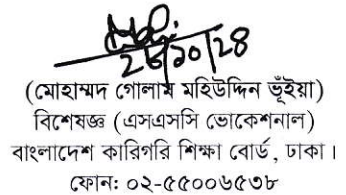 ২৮/১০/২৪
(মোহাম্মদ গোলাম মহিউদ্দিন ভূঁইয়া)
বিশেষজ্ঞ (এসএসসি ভোকেশনাল)
বাংলাদেশ কারিগরি শিক্ষা বোর্ড, ঢাকা।
ফোন: ০২-৫৫০০৬৫৩৮